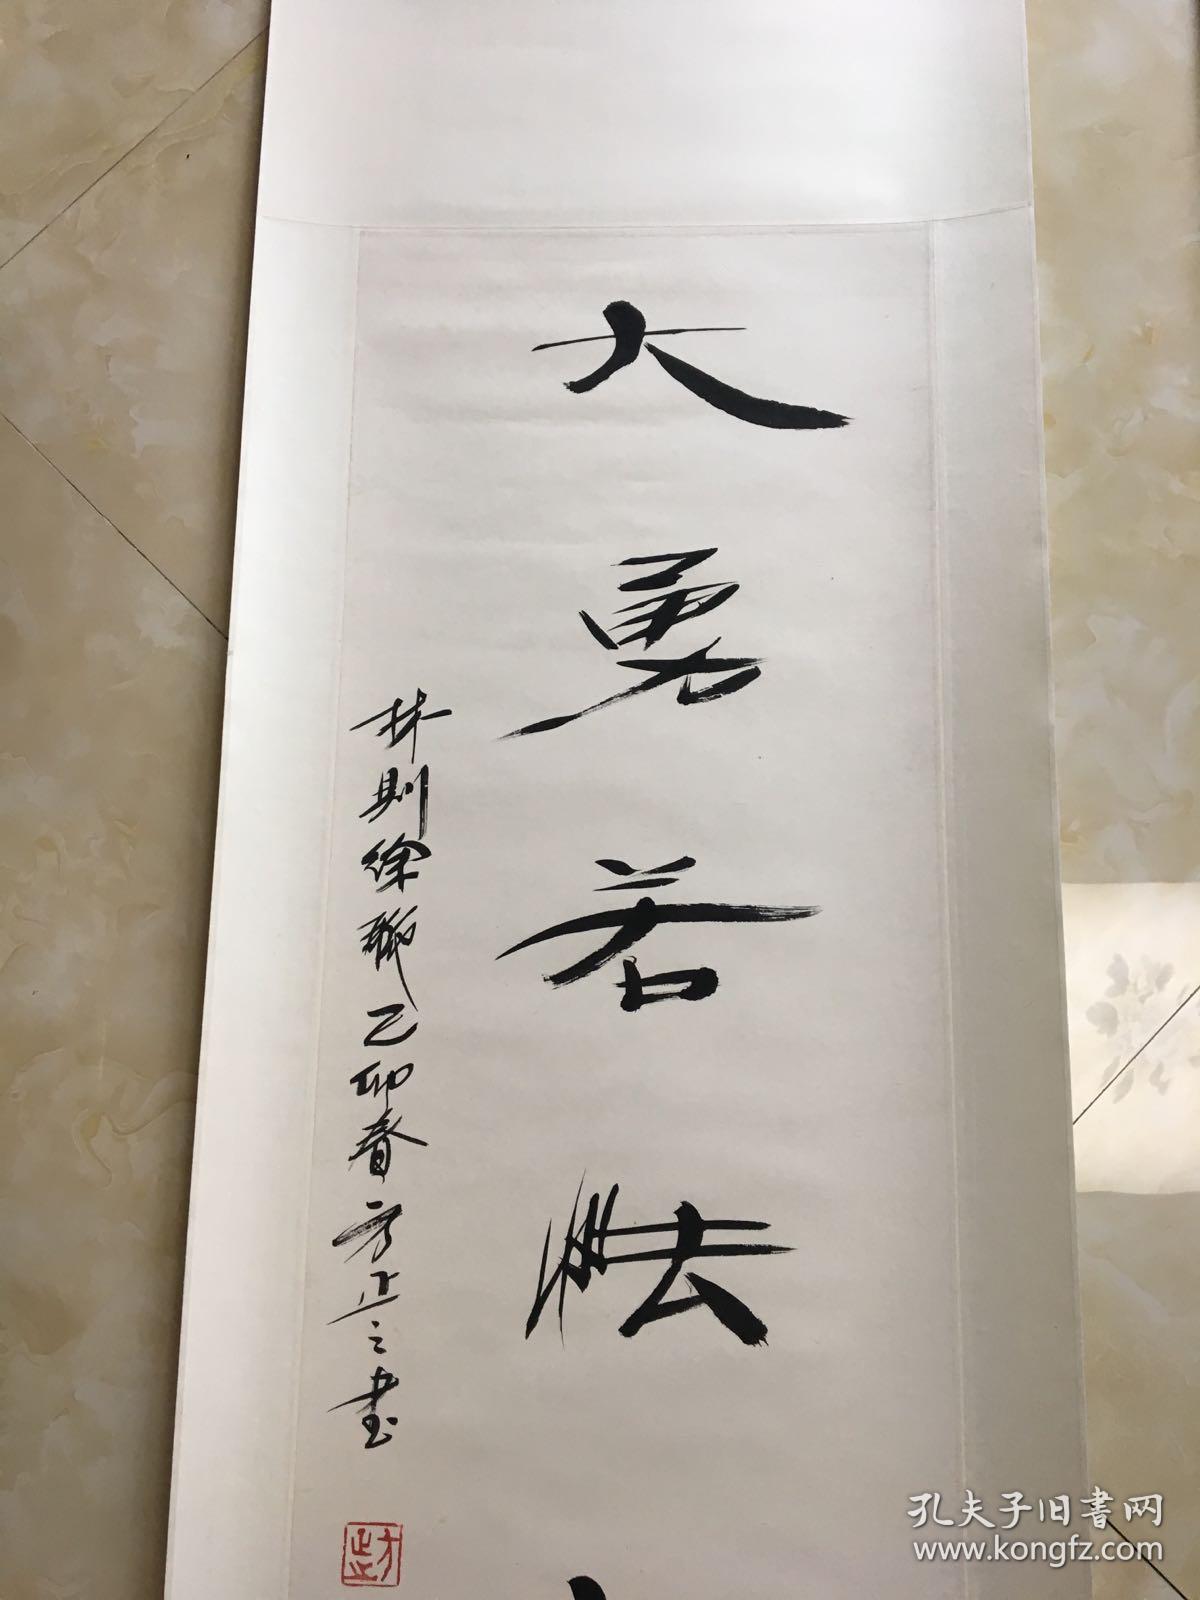 大勇若怯
林则徐联乙卯春方正之书
孔夫子旧書网
www.kongfz.com